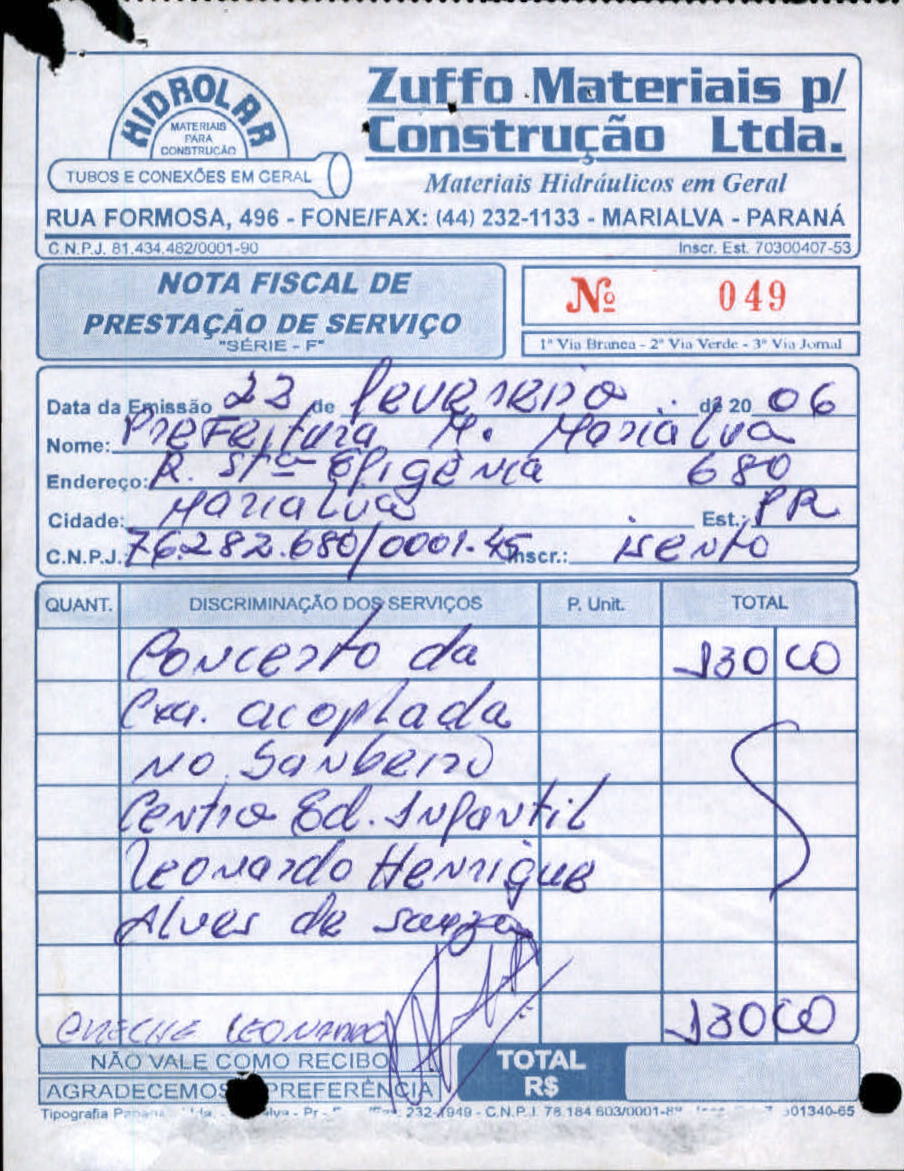 HIDROLAR
MATERIAIS
PARA
CONSTRUÇÃO
TUBOS E CONEXÕES EM GERAL
Zuffo Materiais p/
Construção Ltda.
Materiais Hidráulicos em Geral
RUA FORMOSA, 496 - FONE/FAX: (44) 232-1133 - MARIALVA - PARANÁ
C.N.P.J. 81.434.482/0001-90 Inscr. Est. 70300407-53
NOTA FISCAL DE
PRESTAÇÃO DE SERVIÇO
"SÉRIE - F"
Nº 049
1ª Via Branca - 2ª Via Verde - 3ª Via Jornal
Data da Emissão 23 de fevereiro de 20 06
Nome: Prefeitura M. Marialva
Endereço: R. Stª Efigênia 680
Cidade: Marialva Est.: PR
C.N.P.J. 76.282.680/0001.45 Inscr.: isento
QUANT. DISCRIMINAÇÃO DOS SERVIÇOS P. Unit. TOTAL
Concerto da 130 00
Cxa. acoplada
no Banheiro
Centro Ed. Infantil
Leonardo Henrique
Alves de Souza
CRECHE LEONARDO 130 00
NÃO VALE COMO RECIBO
AGRADECEMOS PREFERÊNCIA
TOTAL
R$
Tipografia - Pr - 232-1949 - C.N.P.J. 78.184.603/0001- 01340-65